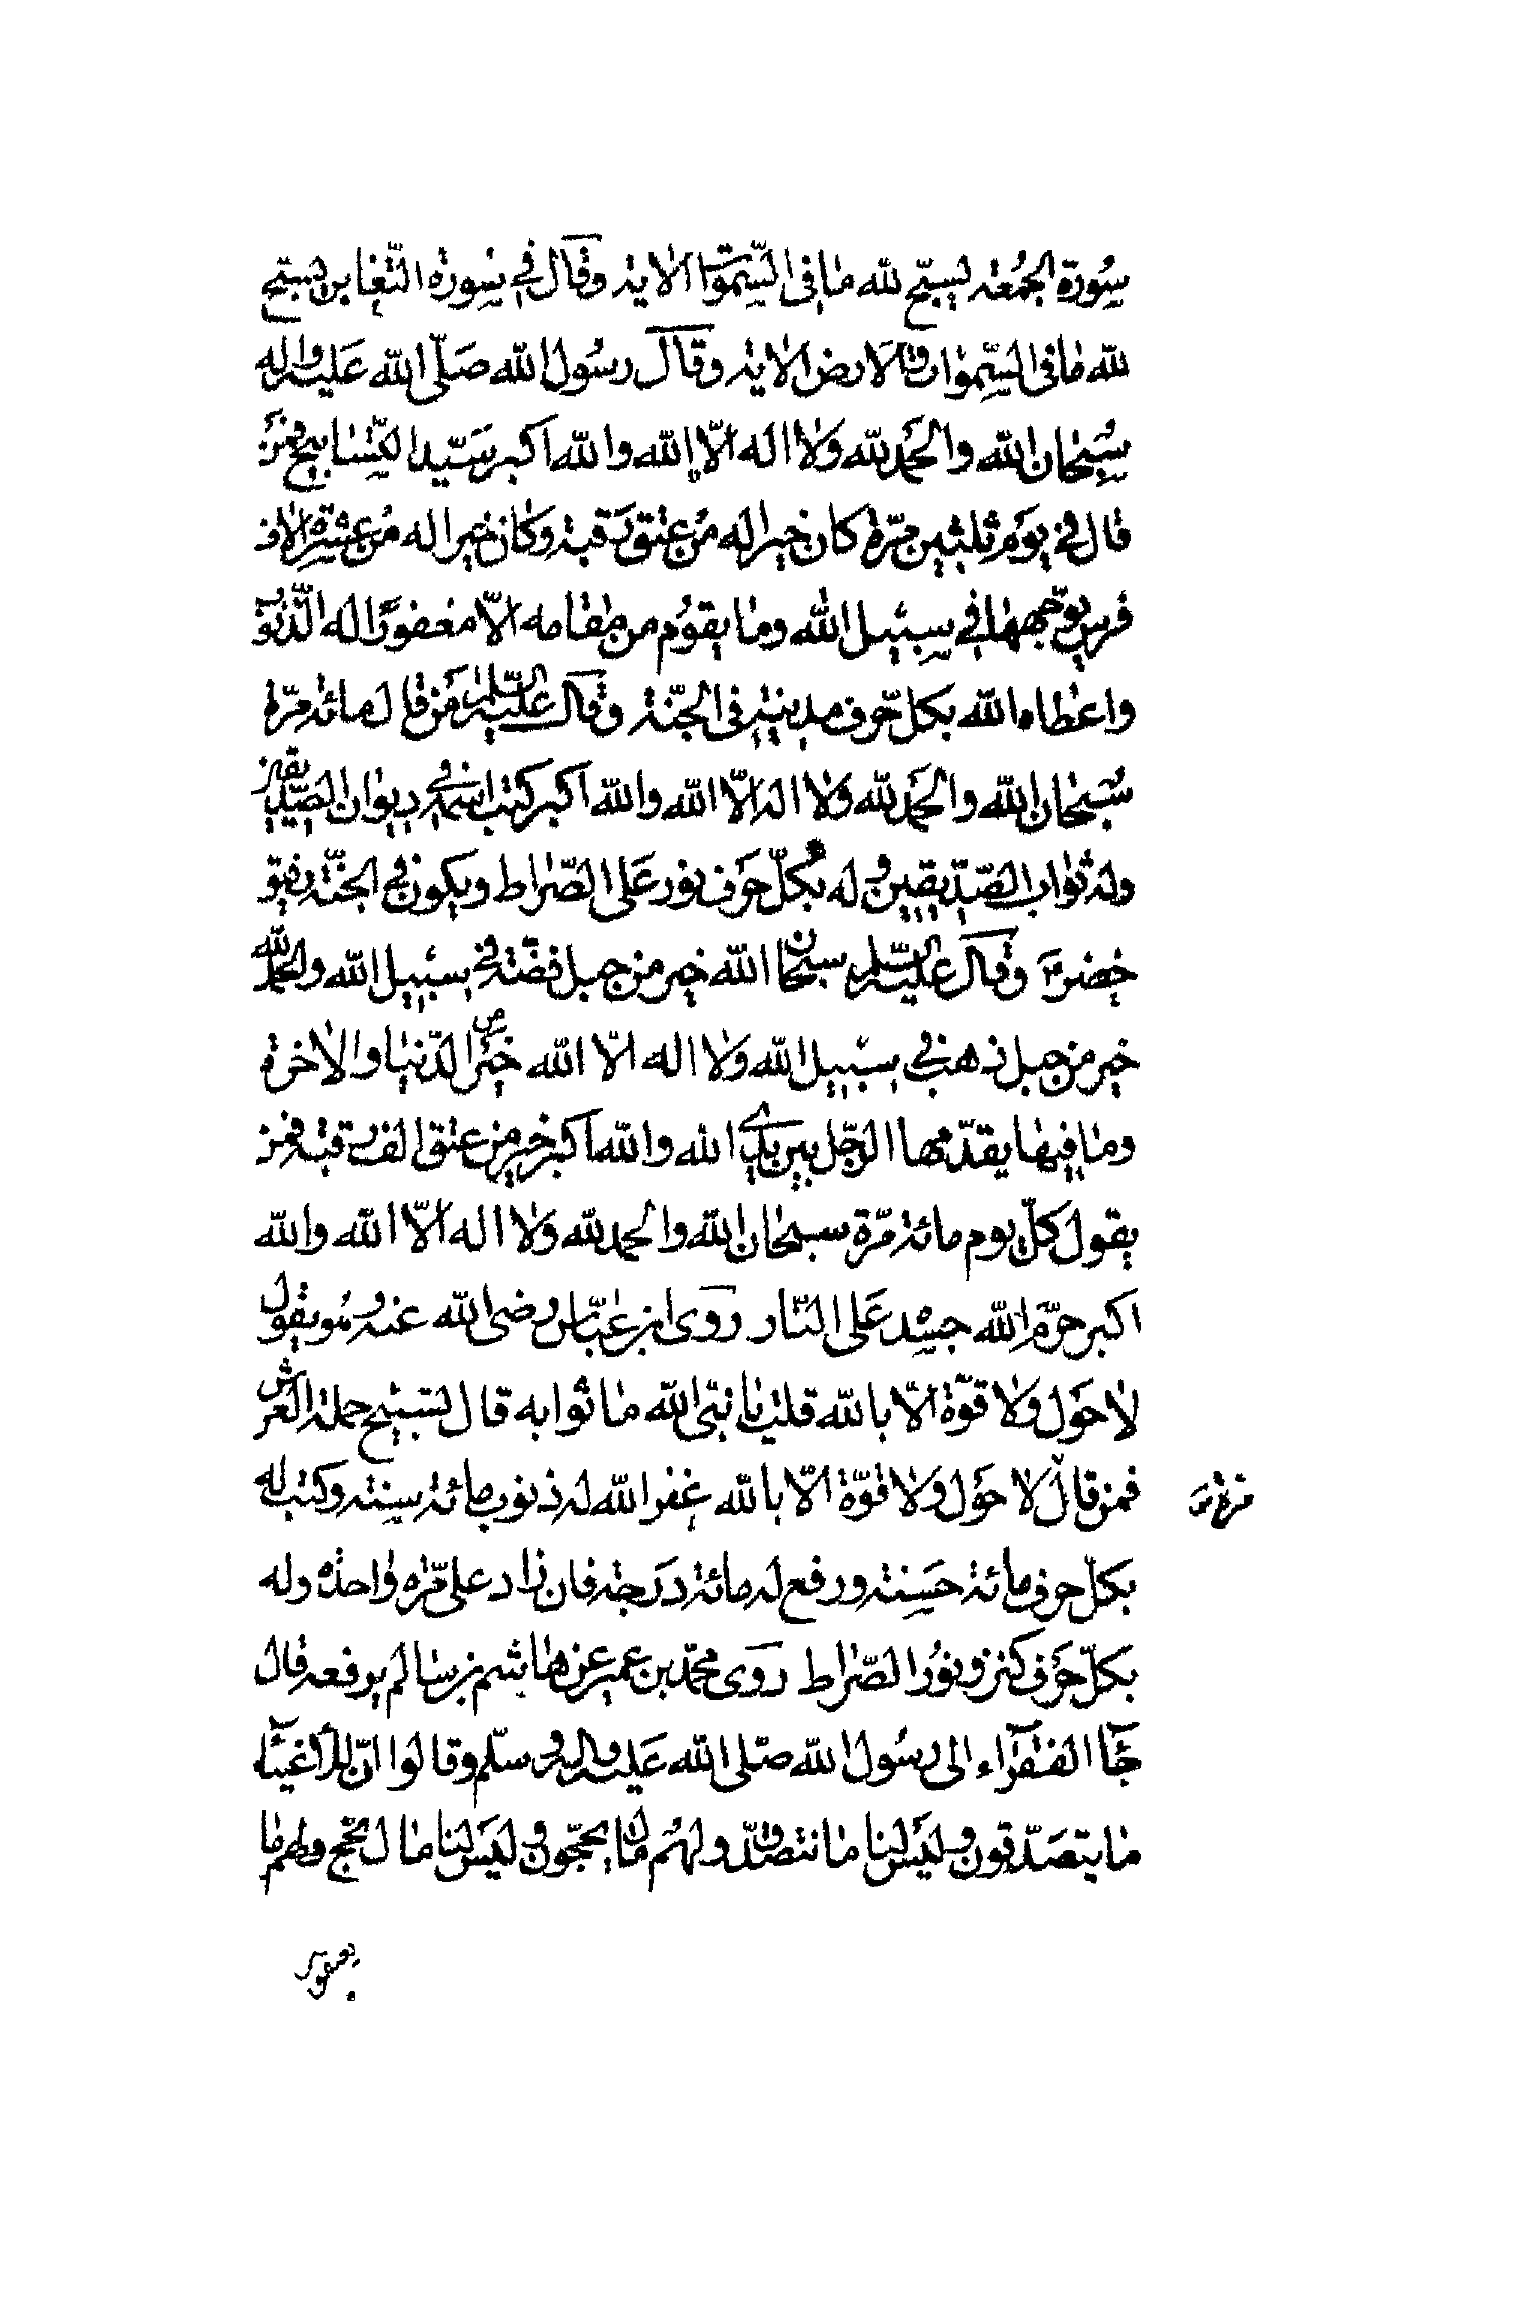 سُورة الجمُعة يسبّح لله مٰا فى السّمٰوات الاية وقال فى سورة التّغابن يسبّح
لله مٰا فى السّمٰوات والارض الاية وقال رسُول الله صَلّى الله عَليه واله
سُبحٰان الله والحَمد لله ولٰا اله الّا الله والله اكبر سَيّد التّسابيح فمَن
قال فى يوَم ثلثين مرّة كان خيرا له من عتق رَقبة وكان خيرا له من عشرة الاف
فرس يوجّهها فى سبيل الله ومٰا يقوُم من مقٰامه الّا مغفورًا له الذنوب
واعطاه الله بكل حرف مدينة فى الجنّة وقال عليه السّلم مَن قال مائة مرّة
سُبحٰان الله والحَمد لله ولٰا اله الّا الله والله اكبر كتب اسمه فى ديوٰان الصّدّيقين
وله ثوٰاب الصّدّيقين وله بُكلّ حرَف نور عَلى الصّراط ويكون فى الجنّة رفيق
خضر وقال عليه السّلم سبحٰان الله خير من جبل فضّة فى سبيل الله والحمد لله
خير من جبل ذهب فى سبيل الله ولٰا اله الّا الله خيَر الدّنيٰا والاخرة
ومٰا فيهٰا يقدّمها الرّجل بين يدي الله والله اكبر خير من عتق الف رقبة فمن
يقول كلّ يوم مائة مرّة سبحٰان الله والحمد لله ولٰا اله الّا الله والله
اكبر حرّم الله جسده عَلى النّار روى ابن عبّاس رضى الله عنه وهُو يقول
لٰا حَول ولٰا قوّة الّا بالله قلت يٰا نبّى الله مٰا ثوابه قال تسبيح حملة العرش
فمن قال لٰا حَول ولٰا قوّة الّا بالله غفر الله له ذنوب مائة سنة وكتب له
مرّة
بكلّ حرف مائة حَسنة ورفع له مائة دَرَجة فان زاد على مرّة وٰاحدة وله
بكلّ حرَف كنز ونوُر الصّراط روى محمّد بن عمير عن هٰاشم بن سٰالم يرفعه قال
جٰاَ الفقرَٰاء الى رسُول الله صّلى الله عَليه واله وسلّم وقالوا انّ للاغنيٰآء
مٰا يتصَدّقون وليَس لنا مٰا نتصدّق ولهُم مٰا يحجّون وليَس لنا مٰا نحج ولهم مٰا
يعتقون